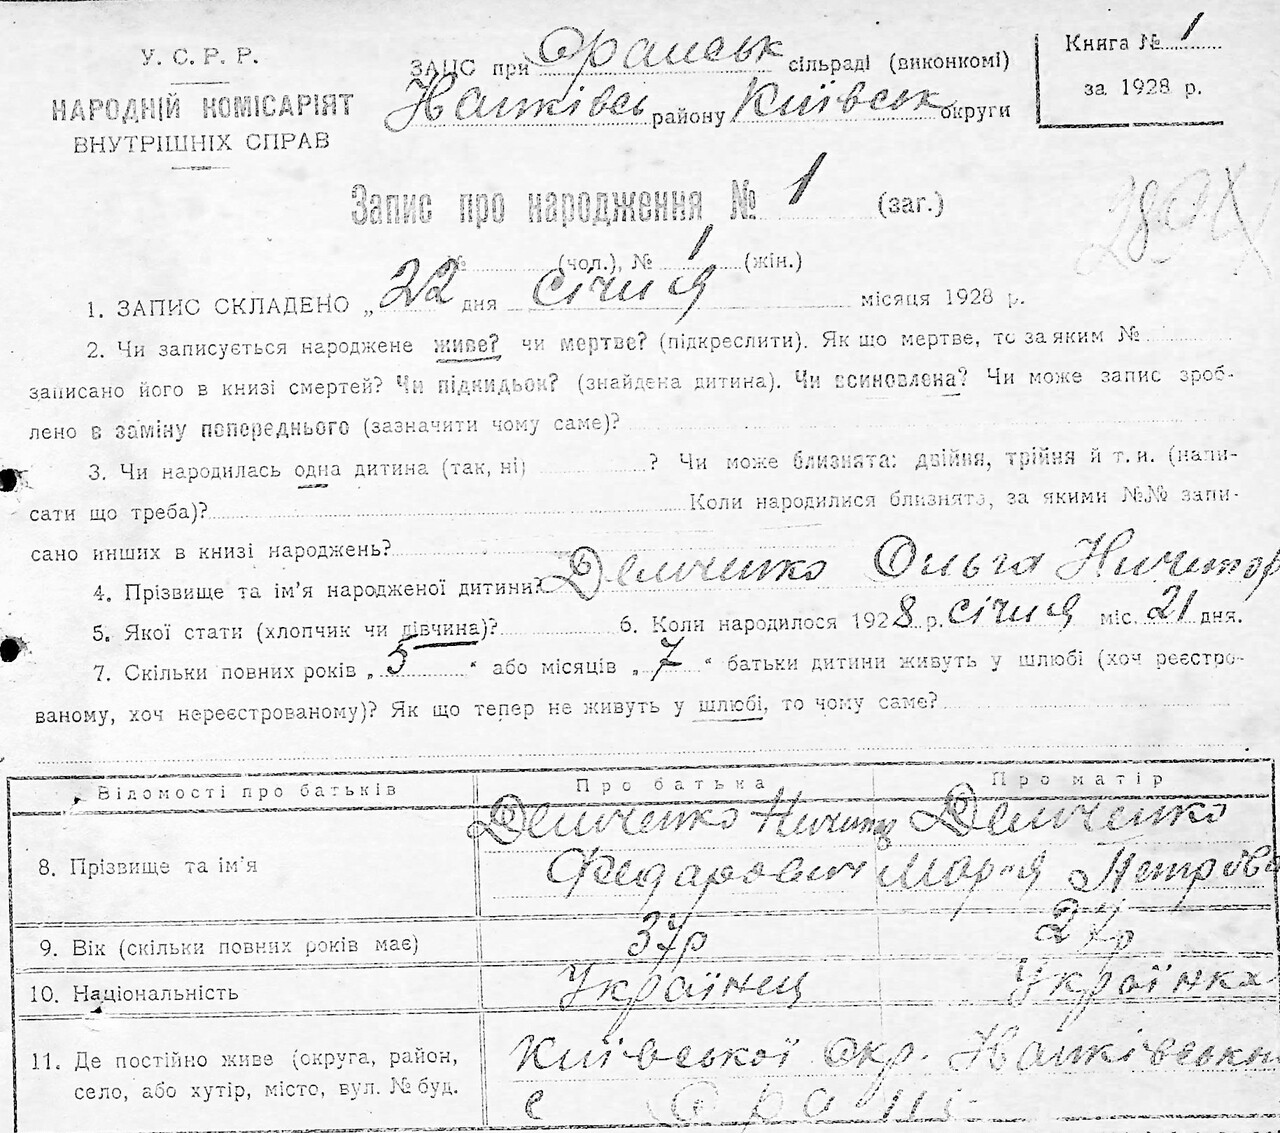 У. С. Р. Р.
НАРОДНІЙ КОМІСАРІЯТ
ВНУТРІШНІХ СПРАВ
ЗАПС при Оранськ сільраді (виконкомі)
району Київськ округи
Книга № 1
за 1928 р.
Запис про народження № 1 (заг.)
№ (чол.), № 1 (жін.)
1. ЗАПИС СКЛАДЕНО „22 дня січня місяця 1928 р.
2. Чи записується народжене живе? чи мертве? (підкреслити). Як що мертве, то за яким №
записано його в книзі смертей? Чи підкидьок? (знайдена дитина). Чи всиновлена? Чи може запис зроб-
лено в заміну попереднього (зазначити чому саме)?
3. Чи народилась одна дитина (так, ні) ? Чи може близнята: двійня, трійня й т. и. (напи-
сати що треба)? Коли народилися близнята, за якими №№ запи-
сано инших в книзі народжень?
4. Прізвище та ім’я народженої дитини? Демченко Ольга Ничипор
5. Якої стати (хлопчик чи дівчина)? 6. Коли народилося 1928 р. січня міс. 21 дня.
7. Скільки повних років „5“ або місяців „7“ батьки дитини живуть у шлюбі (хоч реєстро-
ваному, хоч нереєстрованому)? Як що тепер не живуть у шлюбі, то чому саме?
Відомості про батьків Про батька Про матір
8. Прізвище та ім’я Демченко Демченко
Федарович Мария Петрівна
9. Вік (скільки повних років має) 37р 27р
10. Національність Українец Українка
11. Де постійно живе (округа, район, Київської окр.
село, або хутір, місто, вул. № буд. с Оране